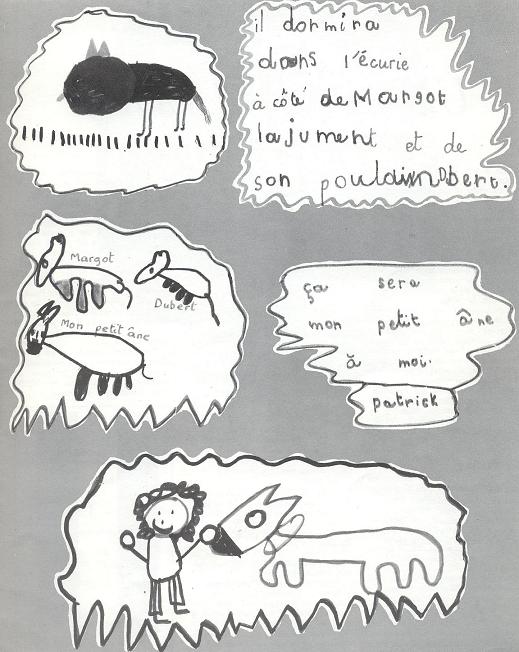 il dormira
dans l'écurie
à côté de Margot
la jument et de
son poulain
Margot
Dubert
Mon petit âne
ça sera
mon petit âne
à moi.
patrick